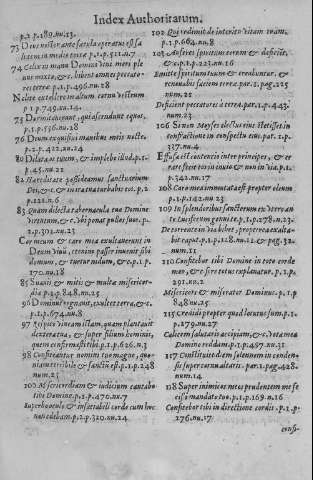 Index Authoritatum.
p.2 p.189.nu.23.
73 Deus noster ante sæcula operatus est sa
lutem in medio terræ p.1.p.511.n.7
74 Calix in manu Domini vini meri ple
nus mixto, &c. bibent omnes peccato-
res terræ p.1.p.496.nu.18
Nolite extollere in altum cornu vestrum
p.1 p.749.nu.14.
75 Dormitaverunt, qui ascenderunt equos,
p.1.p.536.nu.18
76 Deum exquisivi manibus meis nocte,
p.2.p.422.nu.24
80 Dilata os tuum, & implebo illud.p.1.
p.45.nu.21
82 Hæreditate possideamus sanctuarium
Dei, &c. p.2
p.121.n.6
83 Quam dilecta tabernacula tua Domine
virtutum, &c. p.
2.p.301.nu.23
Cor meum & caro mea exultaverunt in
Deum vivum, etenim passer invenit sibi
domum, & turtur nidum, &c. p.1.p.
170.nu.18
85 Suavis & mitis & multæ misericor-
diæ p.1.p.848.nu.25
96 Dominus regnavit, exultet terra, &c.
p.1.p.674.nu.8
97 Respice vineam istam, quam plantavit
dextera tua, & super filium hominis,
quem confirmasti tibi p.1.p.626.n.3
98 Confiteantur nomini tuo magno, quo-
niam terribile & sanctum est.p.1.p.248
num.25
100 Misericordiam & iudicium cantabo
tibi Domine.p.1.p.470.nu.7
Superbo oculo & insatiabili corde cum hoc
non edebam p.2.p.320.nu.24
102 Qui redimit de interitu vitam tuam.
p.1 p.664.nu.8
103 Auferes spiritum eorum & deficient,
&c.p.1.p.223.nu.16
Emitte spiritum tuum & creabuntur, &
renovabis faciem terræ.par.1.pag.225
num.21
Deficiant peccatores à terra.par.1.p.443.
num.23
106 Si non Moyses electus eius stetisset in
confractione in conspectu eius.par.1.p.
337.nu.4
Effusa est contentio inter principes, & er
rare fecit eos in invio & non in via.p.1.
p.342.nu.17
108 Caro mea immutata est propter oleum
p.1.p.142.nu.23
109 In splendoribus sanctorum ex utero an
te Luciferum genui te.p.1.p.278.n.23.
De torrente in via bibet, propterea exalta-
bit caput.p.1.p.128.nu.12.& pag.32.
nu.21
110 Confitebor tibi Domine in toto corde
meo, &c.
291.nu.2
Misericors & miserator Dominus.p.1.p
848.nu.25.
115 Credidi propter quod locutus sum.p.1.
p.279.nu.27
Calicem salutaris accipiam, &c. vota mea
Domino reddam.p.1.p.497.nu.31
117 Constituite diem solemnem in conden-
sis usque cornu altaris.par.1.pag.428.
num.14
118 Super inimicos meos prudentem me fe
cisti mandato tuo.p.1.p.169.n.16
Confitebor tibi in directione cordis.p.1.p.
276.nu.17
consi-